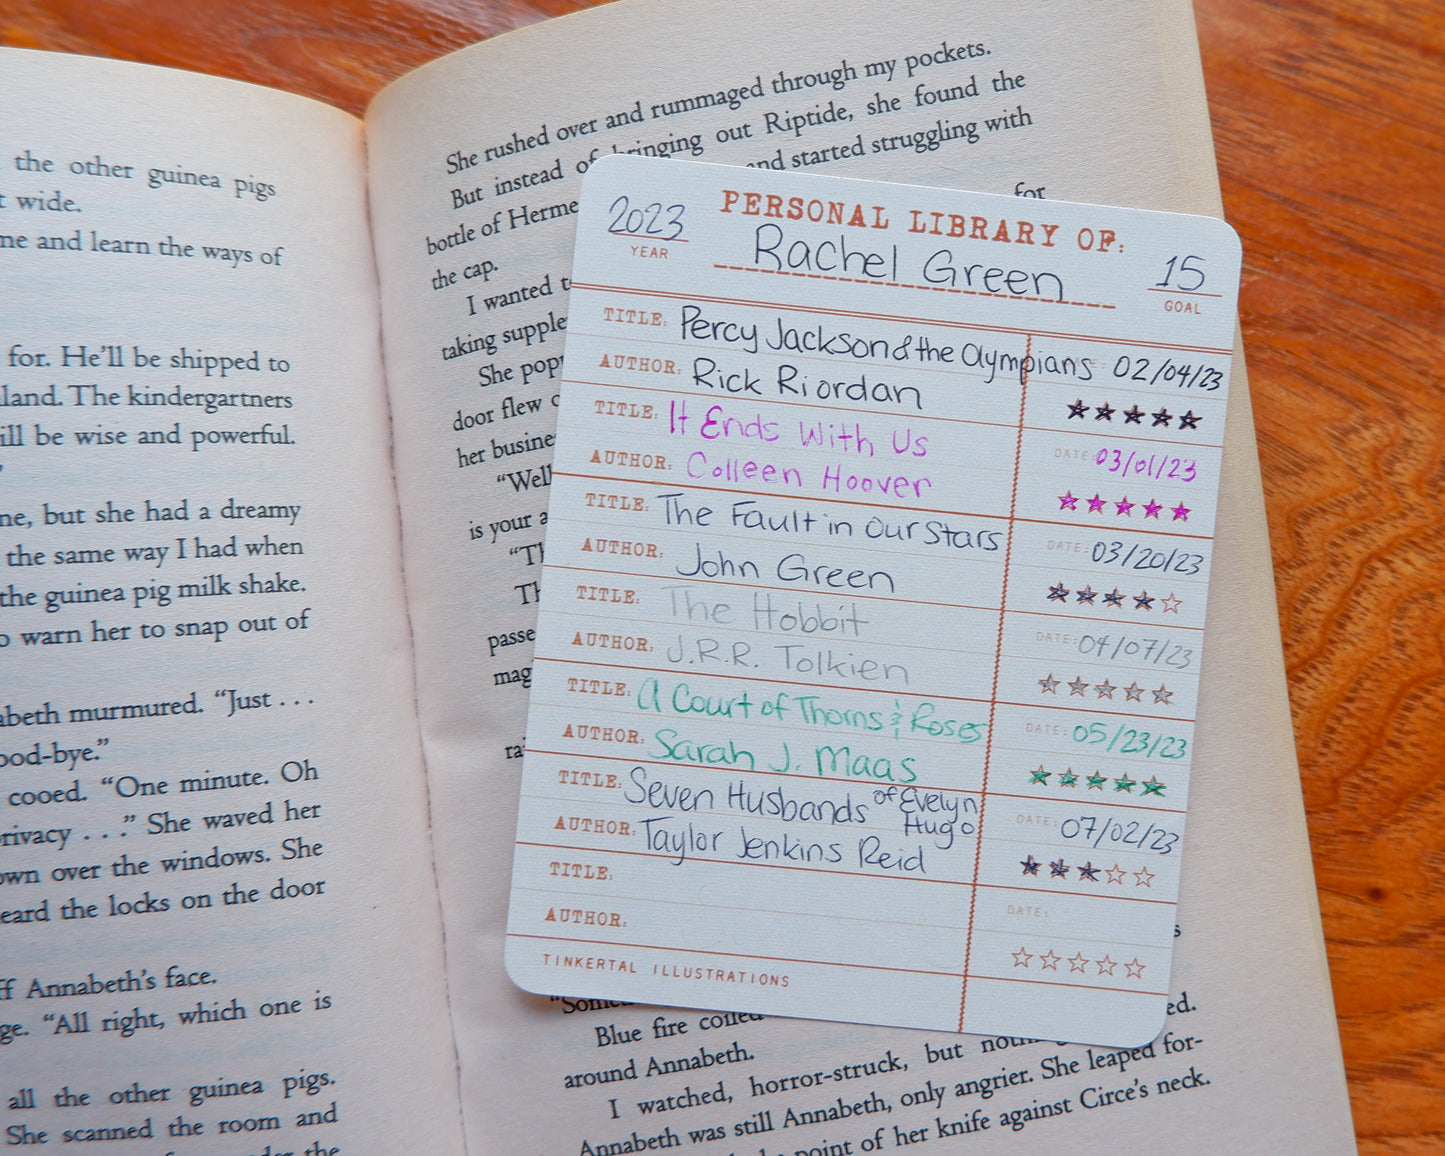 the other guinea pigs
wide.
me and learn the ways of
for. He'll be shipped to
land. The kindergartners
ill be wise and powerful.
ne, but she had a dreamy
the same way I had when
the guinea pig milk shake.
o warn her to snap out of
abeth murmured. “Just . . .
ood-bye.”
cooed. “One minute. Oh
rivacy . . .” She waved her
own over the windows. She
eard the locks on the door
ff Annabeth's face.
ge. “All right, which one is
all the other guinea pigs.
She scanned the room and
the
She rushed over and rummaged through my pockets.
But instead of bringing out Riptide, she found the
bottle of Herme
and started struggling with
the cap.
for
I wanted t
taking supple
She pop
door flew o
her busine
“Well
is your a
“Th
Th
passe
mag
rai
2023
YEAR
PERSONAL LIBRARY OF:
Rachel Green
15
GOAL
TITLE: Percy Jackson & the Olympians 02/04/23
AUTHOR: Rick Riordan ★★★★★
TITLE: It Ends With Us DATE: 03/01/23
AUTHOR: Colleen Hoover ★★★★★
TITLE: The Fault in Our Stars DATE: 03/20/23
AUTHOR: John Green ★★★★☆
TITLE: The Hobbit DATE: 04/07/23
AUTHOR: J.R.R. Tolkien ★★★★★
TITLE: A Court of Thorns & Roses DATE: 05/23/23
AUTHOR: Sarah J. Maas ★★★★★
TITLE: Seven Husbands of Evelyn Hugo DATE: 07/02/23
AUTHOR: Taylor Jenkins Reid ★★★☆☆
TITLE: DATE:
AUTHOR: ☆☆☆☆☆
TINKERTAL ILLUSTRATIONS
s
“Some
ed.
Blue fire coiled
around Annabeth.
I watched, horror-struck, but
Annabeth was still Annabeth, only angrier. She leaped for-
point of her knife against Circe's neck.